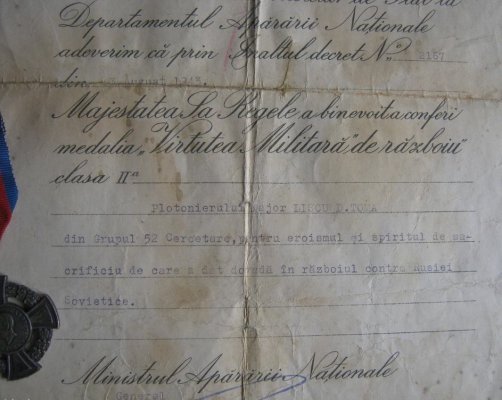 de Stat la
Departamentul Apărării Naționale
adeverim că prin Înaltul decret No. 2167
din August 1943
Majestatea Sa Regele a binevoit a conferi
medalia „Virtutea Militară” de războiu”
clasa II a
Plotonierului major LISCU D. TOMA
din Grupul 52 Cercetare, pentru eroismul și spiritul de sa-
crificiu de care a dat dovadă în războiul contra Rusiei
Sovietice.
Ministrul Apărării Naționale
General